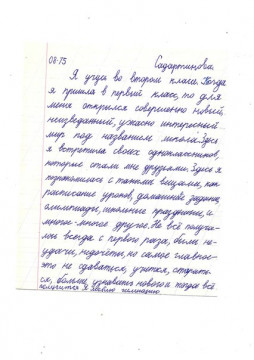 08-75 Садартинова.
Я учусь во втором классе. Когда
я пришла в первый класс, то для
меня открылся совершенно новый,
неизведанный, ужасно интересный
мир под названием школа. Здесь
я встретила своих одноклассников,
которые стали мне друзьями. Здесь я
познакомилась с такими вещами, как
расписание уроков, домашнее задание,
олимпиады, школьные праздники, и
многое многое другое. Не всё получа-
лось всегда с первого раза, были не-
удачи, недочёты, но самое главное-
это не сдаваться, учиться, старать-
ся, больше узнавать нового и тогда всё
получится. Я люблю гимназию.